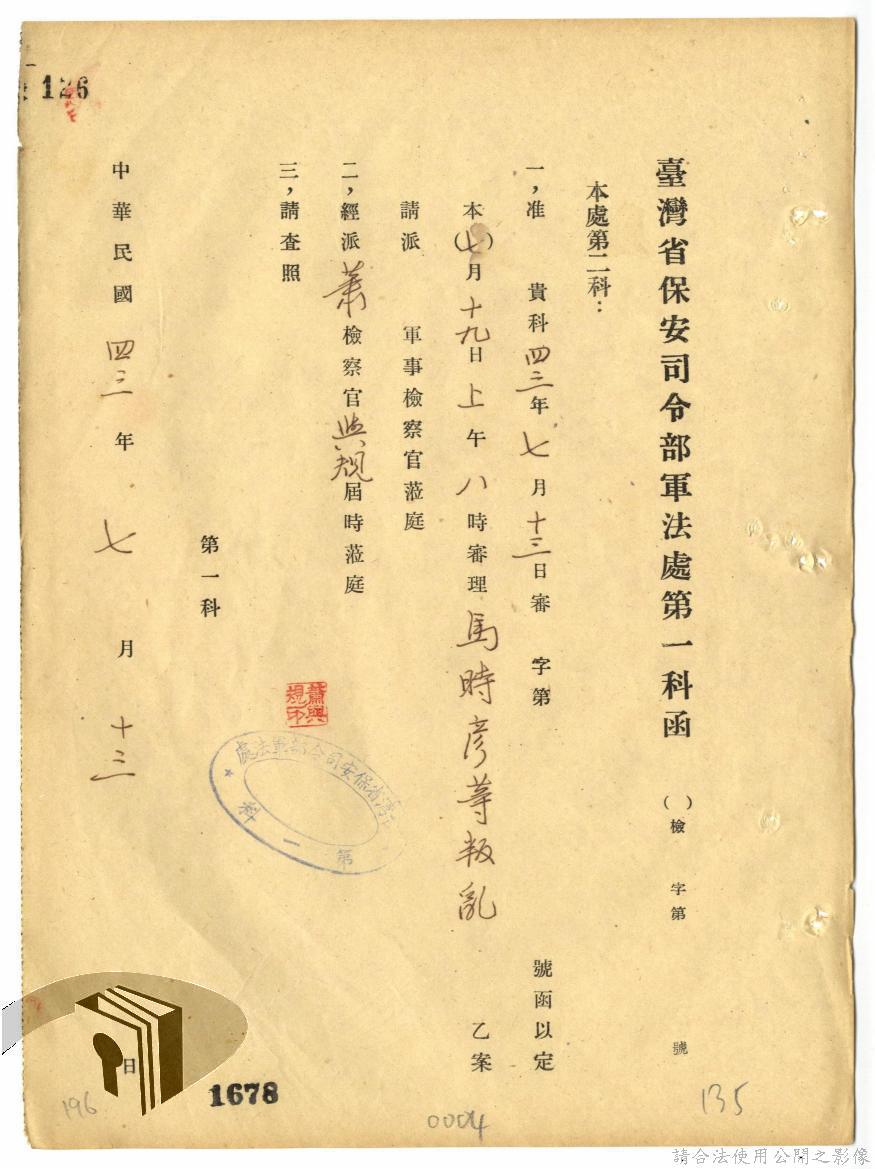 臺灣省保安司令部軍法處第一科函 ( ) 檢 字第 號
本處第二科：
一，准 貴科四三年七月十三日審 字第 號函以定
本(七)月十九日上午八時審理馬時彥等叛亂 乙案
請派 軍事檢察官蒞庭
二，經派蕭檢察官與規屆時蒞庭
三，請查照
第一科
蕭與規印
臺灣省保安司令部軍法處
第一科
中華民國四三年七月十三日
126
1678
196
0004
135
請合法使用公開之影像